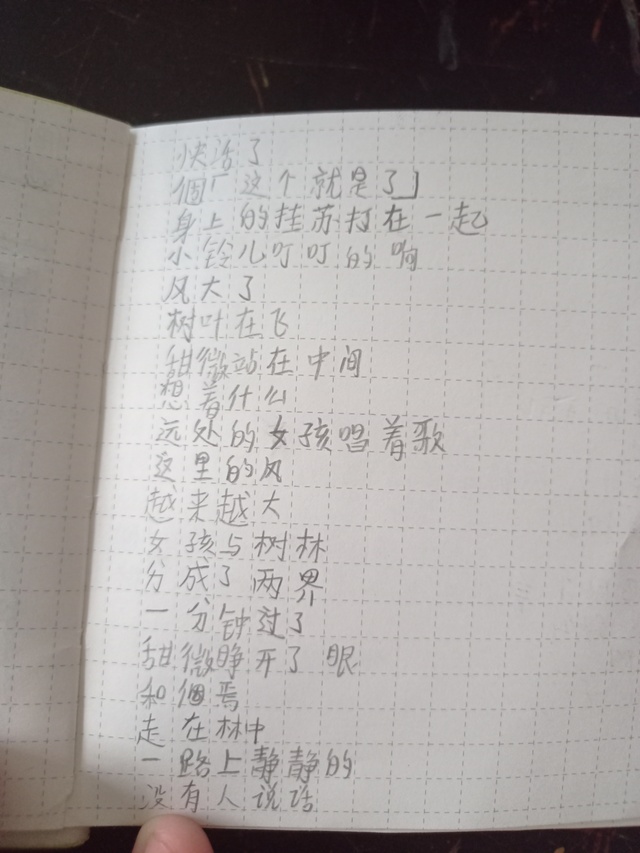 快活了
個「这个就是了」
身上的挂苏打在一起
小铃儿叮叮的响
风大了
树叶在飞
甜微站在中间
想着什么
远处的女孩唱着歌
这里的风
越来越大
女孩与树林
分成了两界
一分钟过了
甜微睁开了眼
和個焉
走在林中
一路上静静的
没有人说话